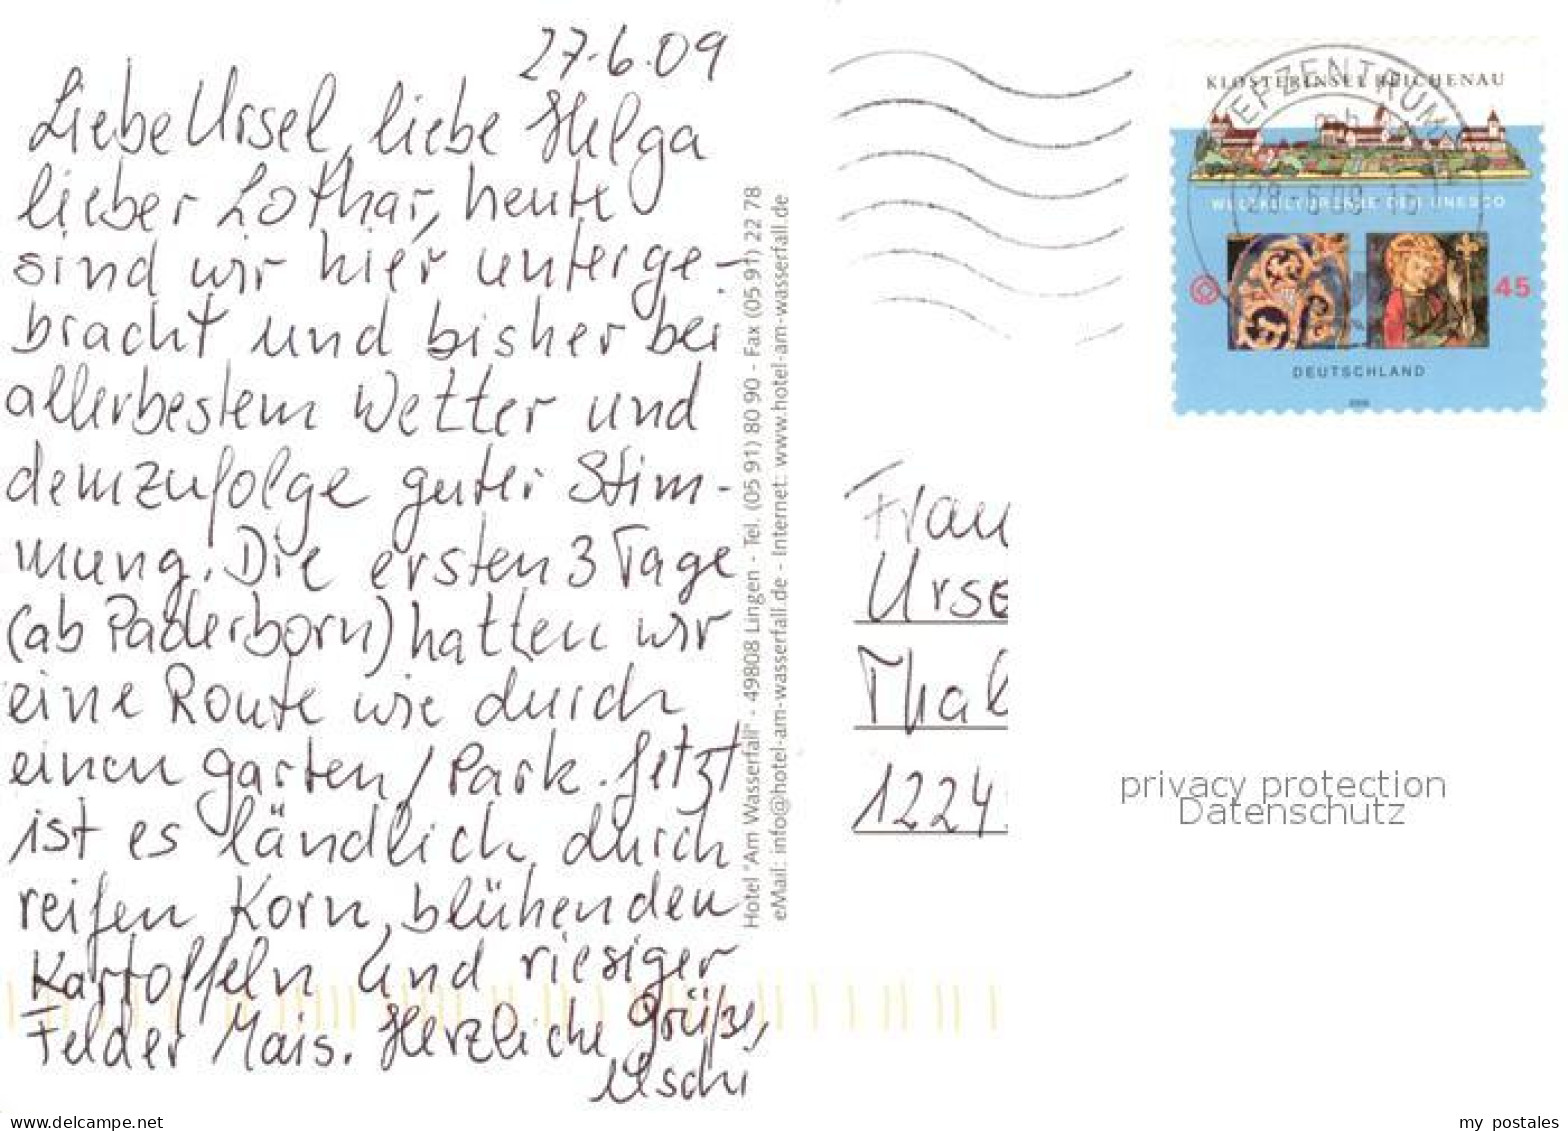 27.6.09
Liebe Ursel, liebe Helga
lieber Lothar, heute
sind wir hier unterge-
bracht und bisher bei
allerbestem Wetter und
demzufolge guter Stim-
mung. Die ersten 3 Tage
(ab Paderborn) hatten wir
eine Route wie durch
einen Garten/Park. Jetzt
ist es ländlich, durch
reifen Korn, blühenden
Kartoffeln und riesiger
Felder Mais. Herzliche Grüße,
Uschi
Hotel "Am Wasserfall" - 49808 Lingen - Tel. (05 91) 80 90 - Fax (05 91) 22 78
eMail: info@hotel-am-wasserfall.de - Internet: www.hotel-am-wasserfall.de
KLOSTERINSEL REICHENAU
WELTKULTURERBE DER UNESCO
45
DEUTSCHLAND
Frau
Urse
Thak
1224
privacy protection
Datenschutz
www.delcampe.net
my_postales